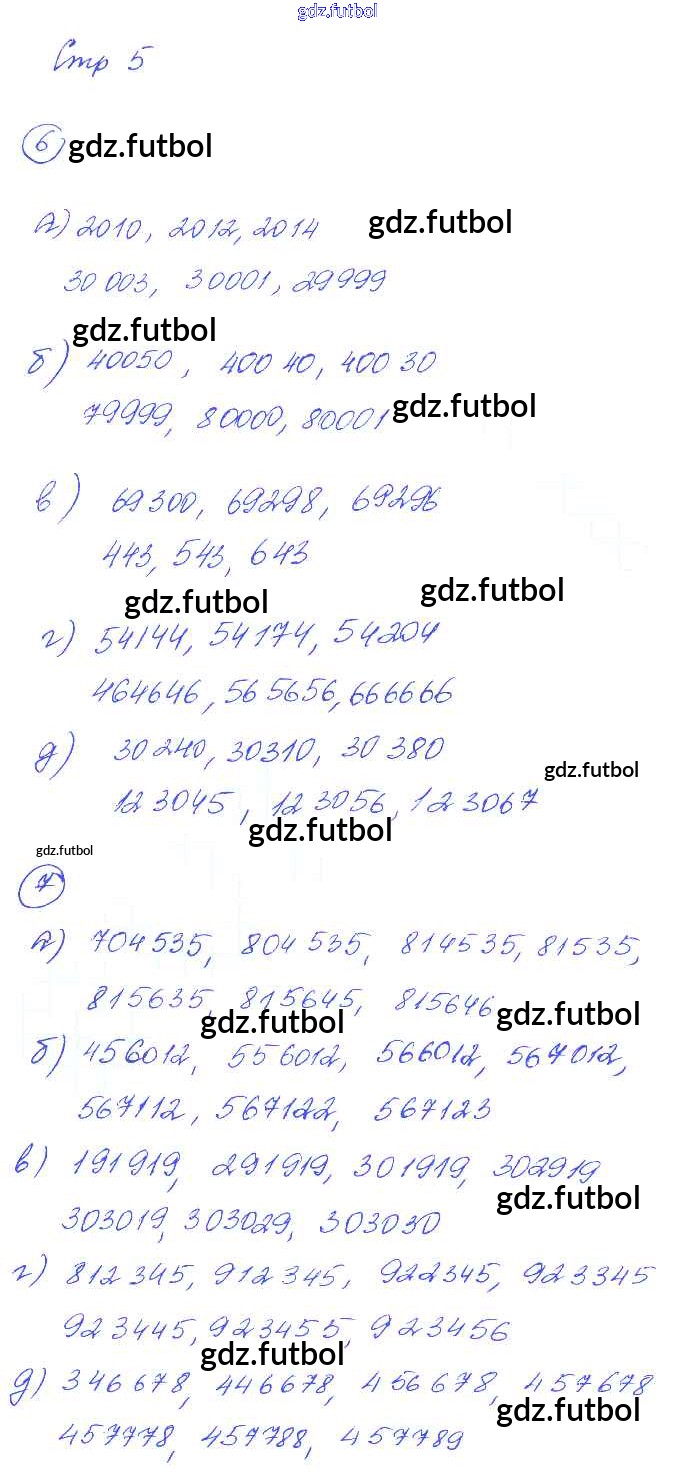 gdz.futbol
Стр 5
6 gdz.futbol
А) 2010, 2012, 2014 gdz.futbol
30 003, 30001, 29999
gdz.futbol
б) 40050, 400 40, 400 30
79999, 80000, 80001 gdz.futbol
в) 69300, 69298, 69296
443, 543, 643
gdz.futbol gdz.futbol
г) 54144, 54174, 54204
464646, 565656, 666666
д) 30240, 30310, 30 380
gdz.futbol
123045, 123056, 123067
gdz.futbol
gdz.futbol
7
А) 704535, 804 535, 814535, 81535,
815635, 815645, 815646
gdz.futbol gdz.futbol
б) 456012, 556012, 566012, 567012,
567112, 567122, 567123
в) 191919, 291919, 301919, 302919
gdz.futbol
303019, 303029, 303030
г) 812345, 912345, 922345, 923345
923445, 923455, 923456
gdz.futbol
д) 346678, 446678, 456678, 457678
gdz.futbol
457778, 457788, 457789